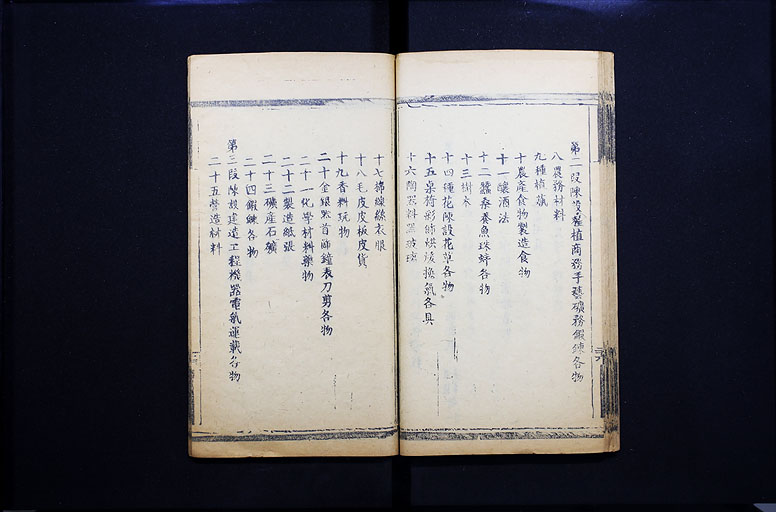 第二段陳設種植商務手藝礦務鍜練各物
八農務材料
九種植
十農產食物製造食物
十一釀酒法
十二蠶桑養魚珠蚌各物
十三樹木
十四種花陳設花草各物
十五桌椅形飾烘煖換氣各具
十六陶器料器玻璃
十七棉線絲衣服
十八毛皮皮板皮貨
十九香料玩物
二十金銀首飾鐘表刀剪各物
二十一化學材料藥物
二十二製造紙張
二十三礦產石礦
二十四鍜練各物
第三段陳設建造工程機器電氣運載各物
二十五營造材料